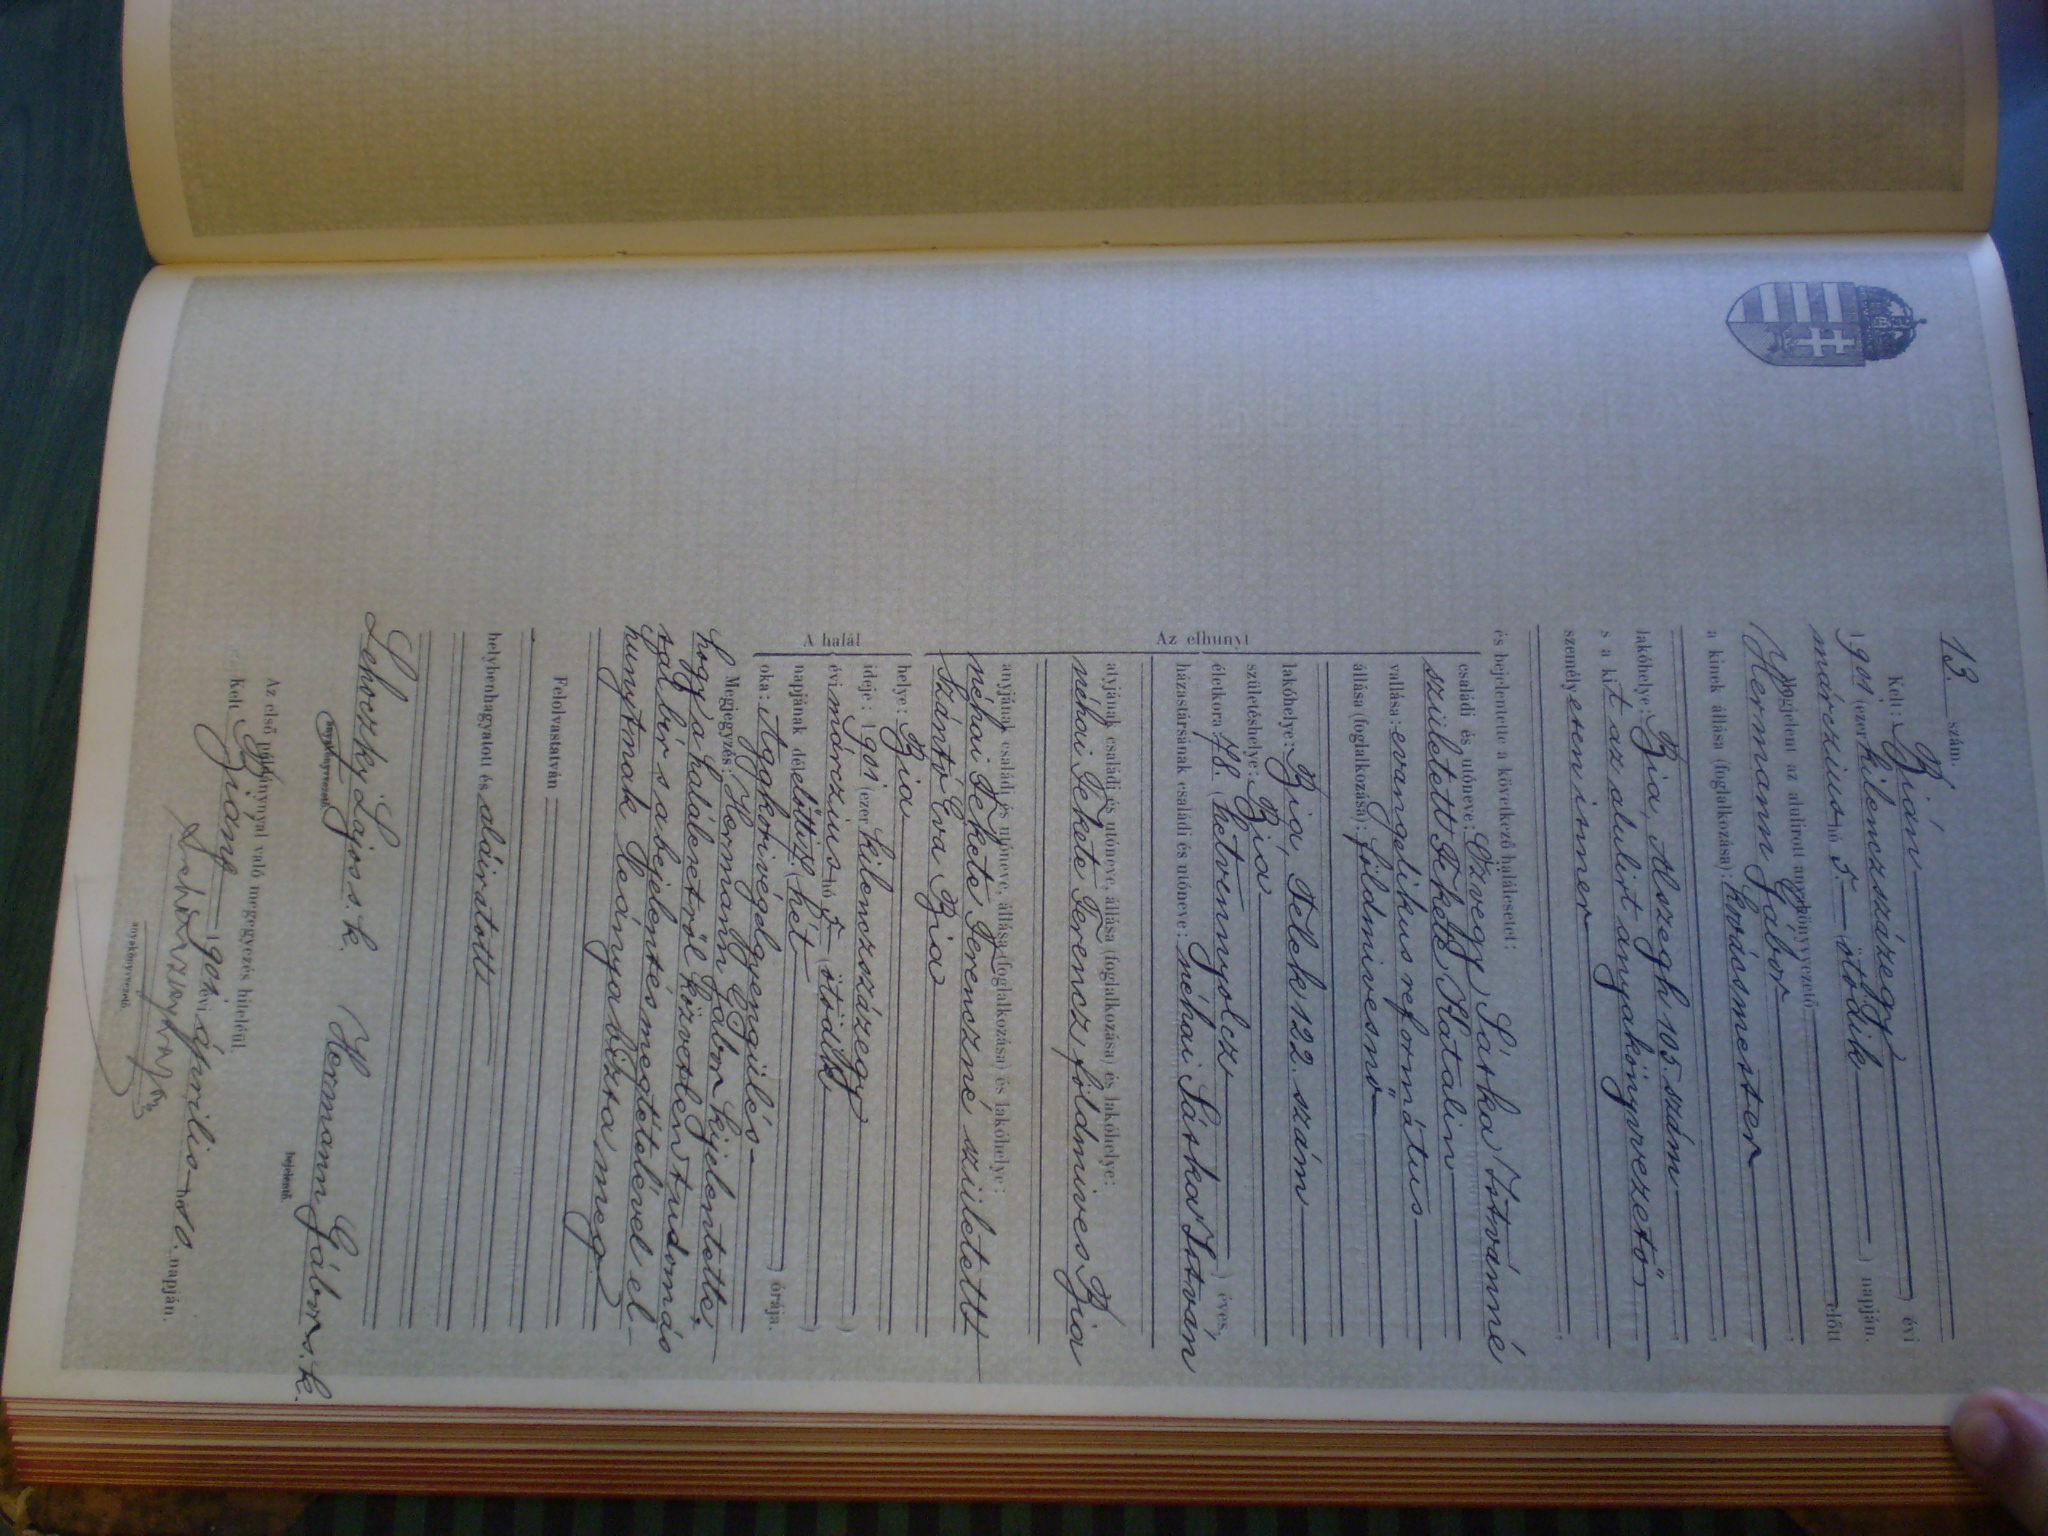 13. szám.
Kelt: Bián évi
1901 (ezer kilenczszázegy)
márczius hó 5. ötödik ) napján.
Megjelent az alulirott anyakönyvvezető előtt
Hermann Gábor
a kinek állása (foglalkozása): kovácsmester
lakóhelye: Bia, Alszegh 105. szám
s a kit az alulirt anyakönyvvezető
személyesen ismer
és bejelentette a következő halálesetet:
Az elhunyt
családi és utóneve: Özvegy Sátka Istvánné
született Fekete Katalin
vallása: evangelikus református
állása (foglalkozása): földmivesnő
lakóhelye: Bia, Telek 122. szám
születéshelye: Bia
életkora 78. (hetvennyolcz ) éves,
házastársának családi és utóneve: néhai Sátka István
atyjának családi és utóneve, állása (foglalkozása) és lakóhelye:
néhai Fekete Ferencz, földmives Bia
anyjának családi és utóneve, állása (foglalkozása) és lakóhelye:
néhai Fekete Ferenczné született
Szántó Éva Bia
A halál
helye: Bia
ideje: 1901 (ezer kilenczszázegy )
évi márczius hó 5 (ötödik )
napjának délelőtti 7 (hét ) órája.
oka: Aggkori végelgyengülés
Megjegyzés: Hermann Gábor kijelentette,
hogy a halálesetről közvetlen tudomás
sal bír s a bejelentés megtételével el-
hunytnak Leánya bizta meg
Felolvastatván
helybenhagyatott és aláiratott
Lehoczky Lajos s. k. Hermann Gábor s. k.
anyakönyvvezető. bejelentő.
Az első példánynyal való megegyezés hiteléül.
Kelt Bián 1901 évi április hó 10. napján.
anyakönyvvezető.